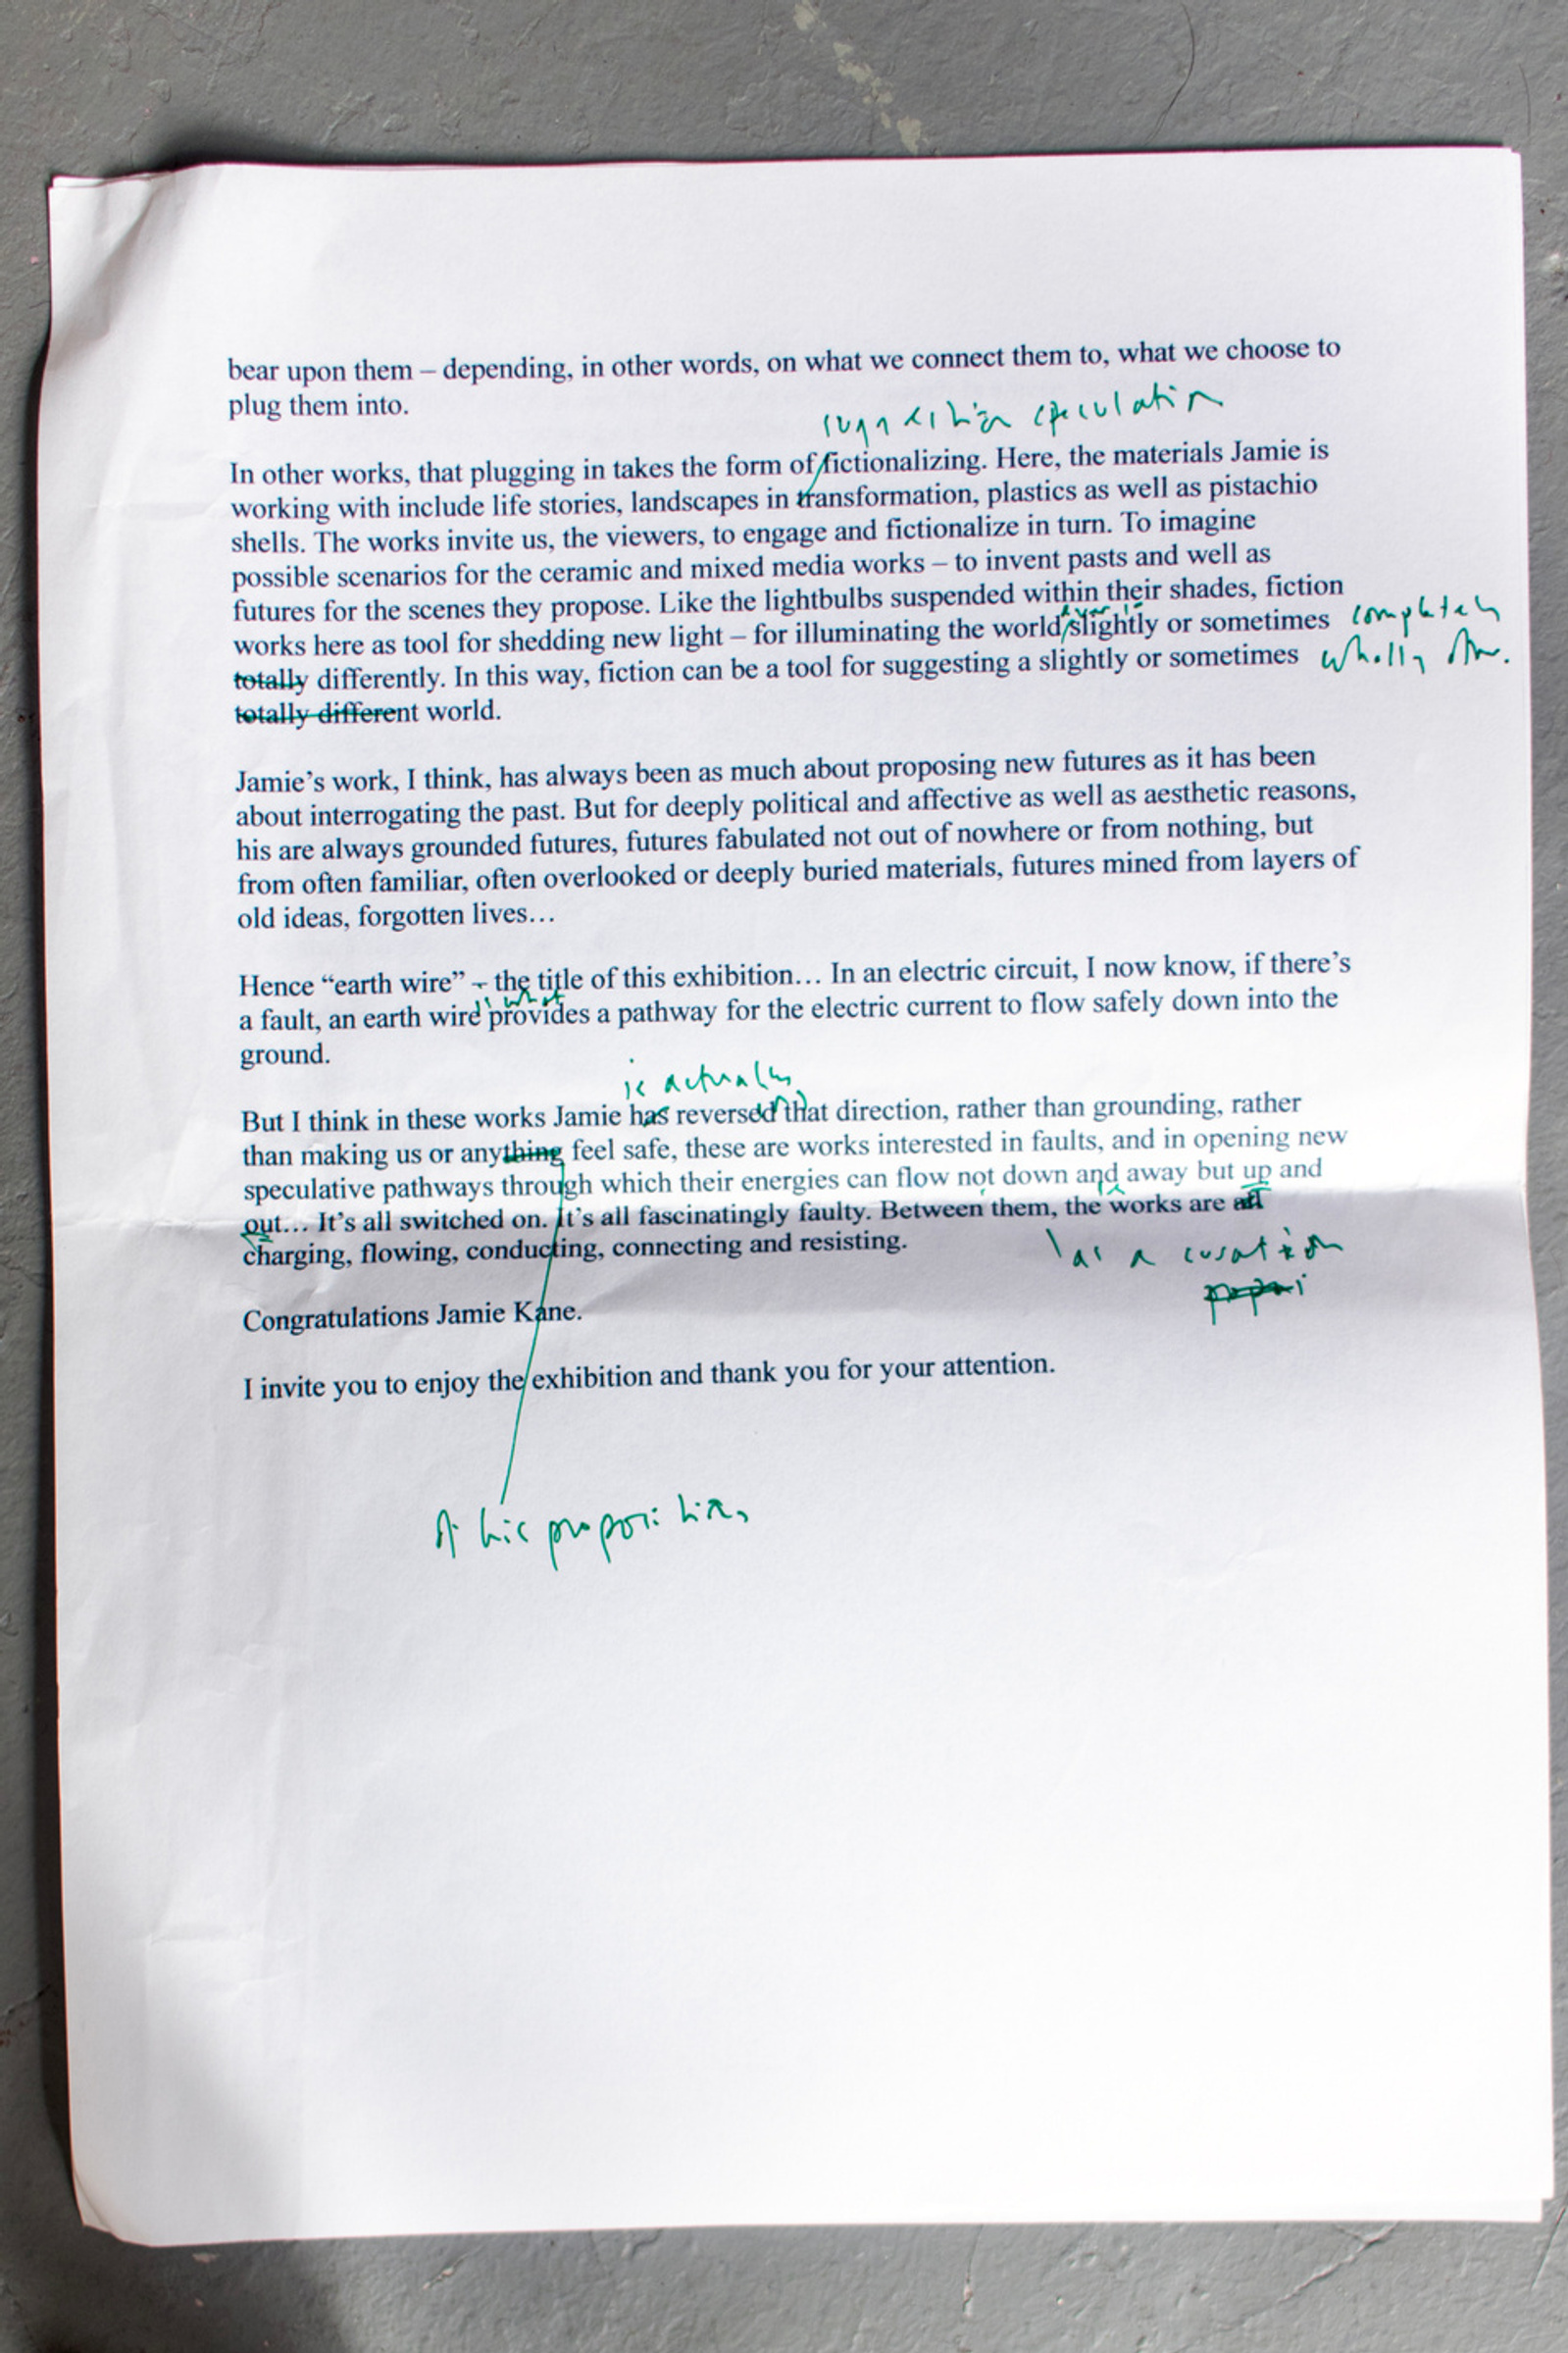 bear upon them – depending, in other words, on what we connect them to, what we choose to
plug them into.
speculation
In other works, that plugging in takes the form of fictionalizing. Here, the materials Jamie is
working with include life stories, landscapes in transformation, plastics as well as pistachio
shells. The works invite us, the viewers, to engage and fictionalize in turn. To imagine
possible scenarios for the ceramic and mixed media works – to invent pasts and well as
futures for the scenes they propose. Like the lightbulbs suspended within their shades, fiction
works here as tool for shedding new light – for illuminating the world slightly or sometimes completely
totally differently. In this way, fiction can be a tool for suggesting a slightly or sometimes wholly
totally different world.
Jamie's work, I think, has always been as much about proposing new futures as it has been
about interrogating the past. But for deeply political and affective as well as aesthetic reasons,
his are always grounded futures, futures fabulated not out of nowhere or from nothing, but
from often familiar, often overlooked or deeply buried materials, futures mined from layers of
old ideas, forgotten lives…
Hence “earth wire” – the title of this exhibition… In an electric circuit, I now know, if there's
is what
a fault, an earth wire provides a pathway for the electric current to flow safely down into the
ground.
is actually
But I think in these works Jamie has reversed that direction, rather than grounding, rather
than making us or anything feel safe, these are works interested in faults, and in opening new
speculative pathways through which their energies can flow not down and away but up and
out… It's all switched on. It's all fascinatingly faulty. Between them, the works are all
charging, flowing, conducting, connecting and resisting.
as a curation
Congratulations Jamie Kane.
I invite you to enjoy the exhibition and thank you for your attention.